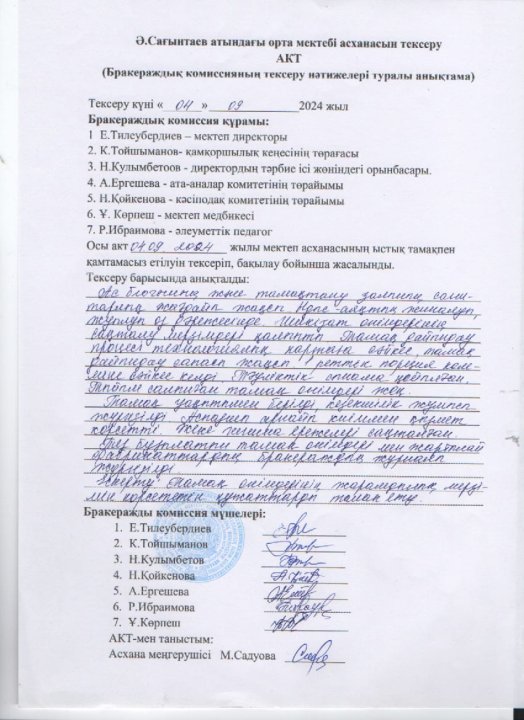 Ә.Сағынтаев атындағы орта мектебі асханасын тексеру
АКТ
(Бракераждық комиссияның тексеру нәтижелері туралы анықтама)
Тексеру күні « 04 » 09 2024 жыл
Бракераждық комиссия құрамы:
1 Е.Тилеубердиев – мектеп директоры
2. К.Тойшыманов- қамқоршылық кеңесінің төрағасы
3. Н.Кулымбетоов - директордың тәрбие ісі жөніндегі орынбасары.
4. А.Ергешева - ата-аналар комитетінің төрайымы
5. Н.Қойкенова - кәсіподақ комитетінің төрайымы
6. Ұ. Көрпеш - мектеп медбикесі
7. Р.Ибраимова - әлеуметтік педагог
Осы акт 04.09 2024 жылы мектеп асханасының ыстық тамақпен
қамтамасыз етілуін тексеріп, бақылау бойынша жасалынды.
Тексеру барысында анықталды:
Ас блогының және тамақтану залының сани-
тарлық жағдайы жақсы
сақтау мерзімдері Тамақ дайындау
процесі технологиялық картаға сәйкес, тамақ
дайындау сапасы жақсы, реттік порция көле-
міне сәйкес келді Тәуліктік сынама қойылған.
тамақ өнімдері жоқ.
Тамақ уақытымен беріледі кезекшілік
жүргізіледі арнайы киіммен қызмет
көрсетті және ережелері сақталған.
Тез бұзылатын тамақ өнімдері мен
бракераждық журналы
жүргізілді
Ескерту: Тамақ өнімдерінің жарамдылық мерзі-
мін көрсететін құжаттарды талап ету.
Бракеражды комиссия мүшелері:
1. Е.Тилеубердиев
2. К.Тойшыманов
3. Н.Кулумбетов
4. Н.Қойкенова
5. А.Ергешева
6. Р.Ибраимова
7. Ұ.Көрпеш
АКТ-мен таныстым:
Асхана меңгерушісі М.Садуова